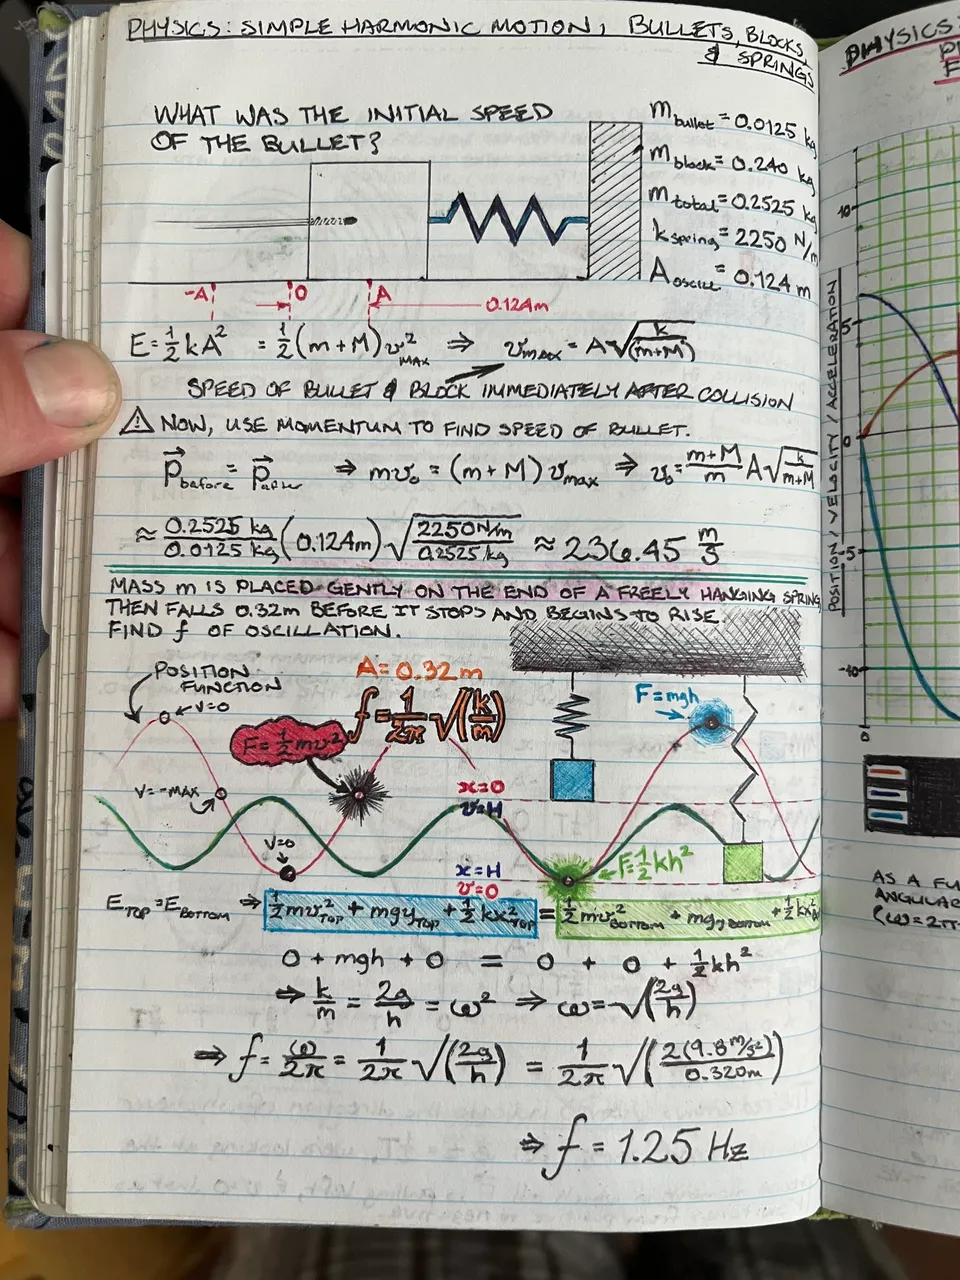 PHYSICS: SIMPLE HARMONIC MOTION, BULLETS, BLOCKS,
& SPRINGS
WHAT WAS THE INITIAL SPEED
OF THE BULLET?
m bullet = 0.0125 kg
m block = 0.240 kg
m total = 0.2525 kg
k spring = 2250 N/m
A oscill = 0.124 m
-A O A 0.124m
E = ½kA² = ½(m+M)v²MAX ⇒ vmax = A√(k/(m+M))
SPEED OF BULLET & BLOCK IMMEDIATELY AFTER COLLISION
⚠ NOW, USE MOMENTUM TO FIND SPEED OF BULLET.
p⃗before = p⃗after ⇒ mv₀ = (m+M)vmax ⇒ v₀ = (m+M)/m A√(k/(m+M))
≈ 0.2525 kg/0.0125 kg (0.124m) √(2250 N/m / 0.2525 kg) ≈ 236.45 m/s
MASS m IS PLACED GENTLY ON THE END OF A FREELY HANGING SPRING
THEN FALLS 0.32m BEFORE IT STOPS AND BEGINS TO RISE.
FIND f OF OSCILLATION.
POSITION
FUNCTION
v=0
A=0.32m
f = 1/2π √(k/m)
F=½mv²
F=mgh
v=-MAX
x=0
v=H
v=0
x=H
v=0
F=½kh²
E TOP = E BOTTOM ⇒ ½mv²TOP + mgyTOP + ½kx²TOP = ½mv²BOTTOM + mgyBOTTOM + ½kx²
0 + mgh + 0 = 0 + 0 + ½kh²
⇒ k/m = 2g/h = ω² ⇒ ω = √(2g/h)
⇒ f = ω/2π = 1/2π √(2g/h) = 1/2π √(2(9.8 m/s²)/0.320m)
⇒ f = 1.25 Hz
PHYSICS:
POSITION / VELOCITY / ACCELERATION
10
5
0
-5
-10
0
AS A FU
ANGULAR
(ω=2π